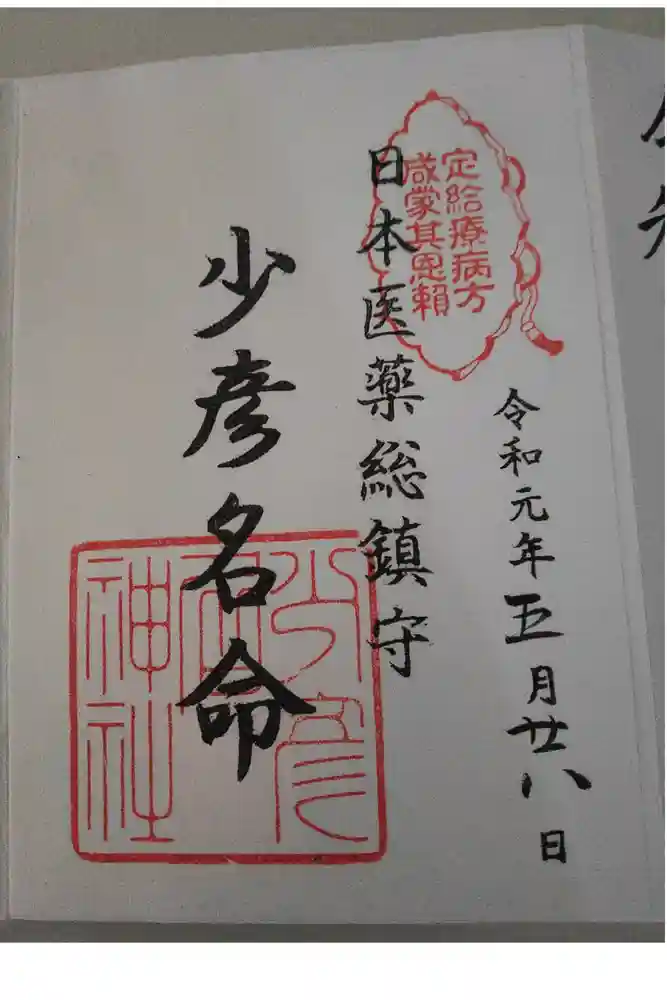 令和元年五月廿八日
定給療病方
咸蒙其恩頼
日本医薬総鎮守
少彦名命
少彦名
神社